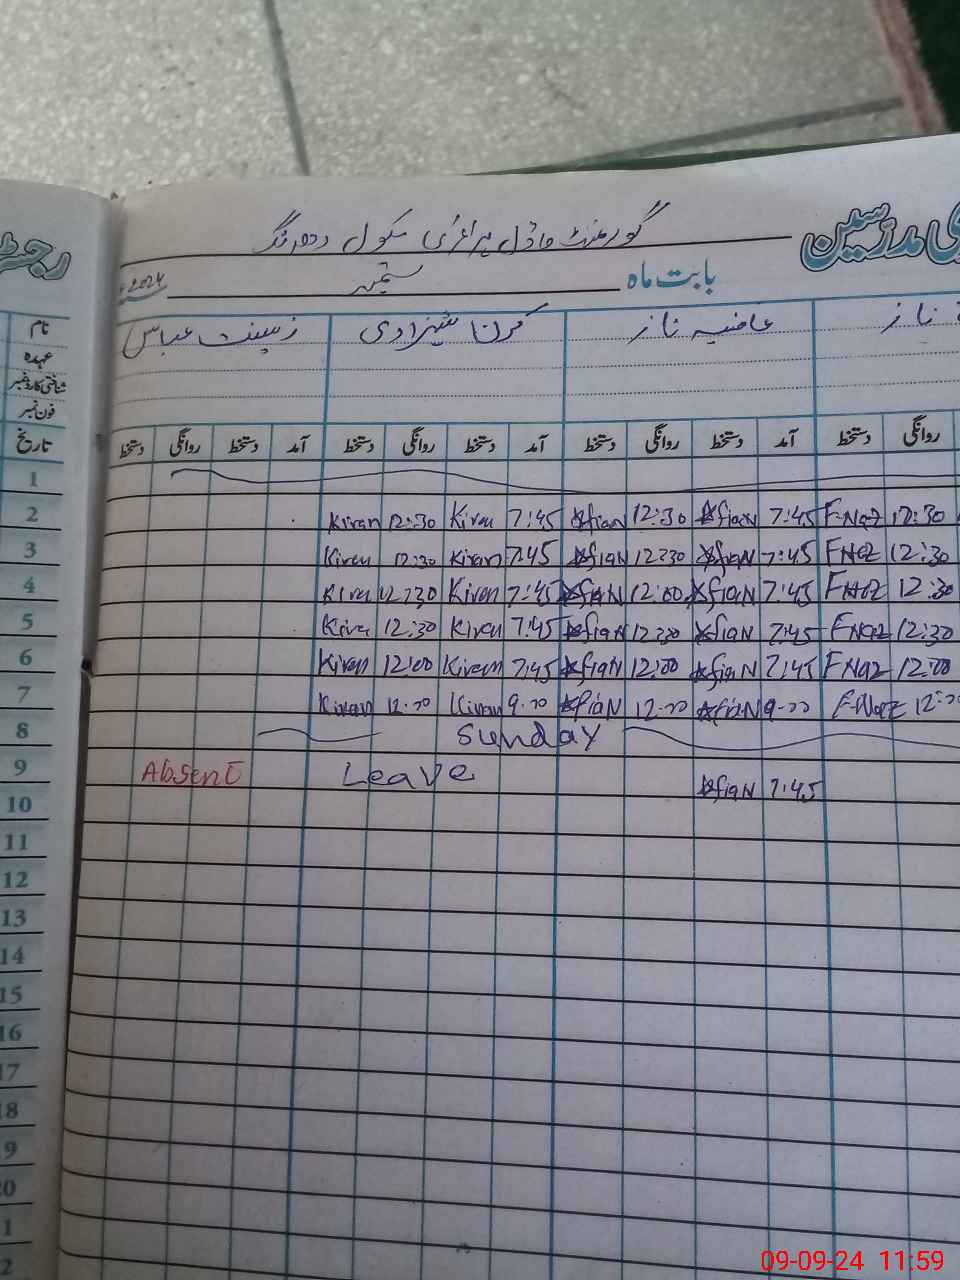 ی مدرسین
رجسٹر
گورنمنٹ ماڈل پرائمری سکول
بابت ماہ ستمبر 2024
نام ناز عافیہ ناز کرن شہزادی زینت عباس
عہدہ
شناختی کارڈ نمبر
فون نمبر
تاریخ روانگی دستخط آمد دستخط روانگی دستخط آمد دستخط روانگی دستخط آمد دستخط روانگی دستخط
1
2 Kiran 12:30 Kiran 7:45 Afian 12:30 Afian 7:45 F-Naz 12:30
3 Kiran 12:30 Kiran 7:45 Afian 12:30 Afian 7:45 FNaz 12:30
4 Kiran 12:30 Kiran 7:45 Afian 12:00 Afian 7:45 FNaz 12:30
5 Kiran 12:30 Kiran 7:45 Afian 12:30 Afian 7:45 FNaz 12:30
6 Kiran 12:00 Kiran 7:45 Afian 12:00 Afian 7:45 FNaz 12:00
7 Kiran 12:00 Kiran 9:00 Afian 12:00 Afian 9:00 F-Naz 12:
8 Sunday
9 Absent Leave Afian 7:45
10
11
12
13
14
15
16
17
18
19
20
09-09-24 11:59